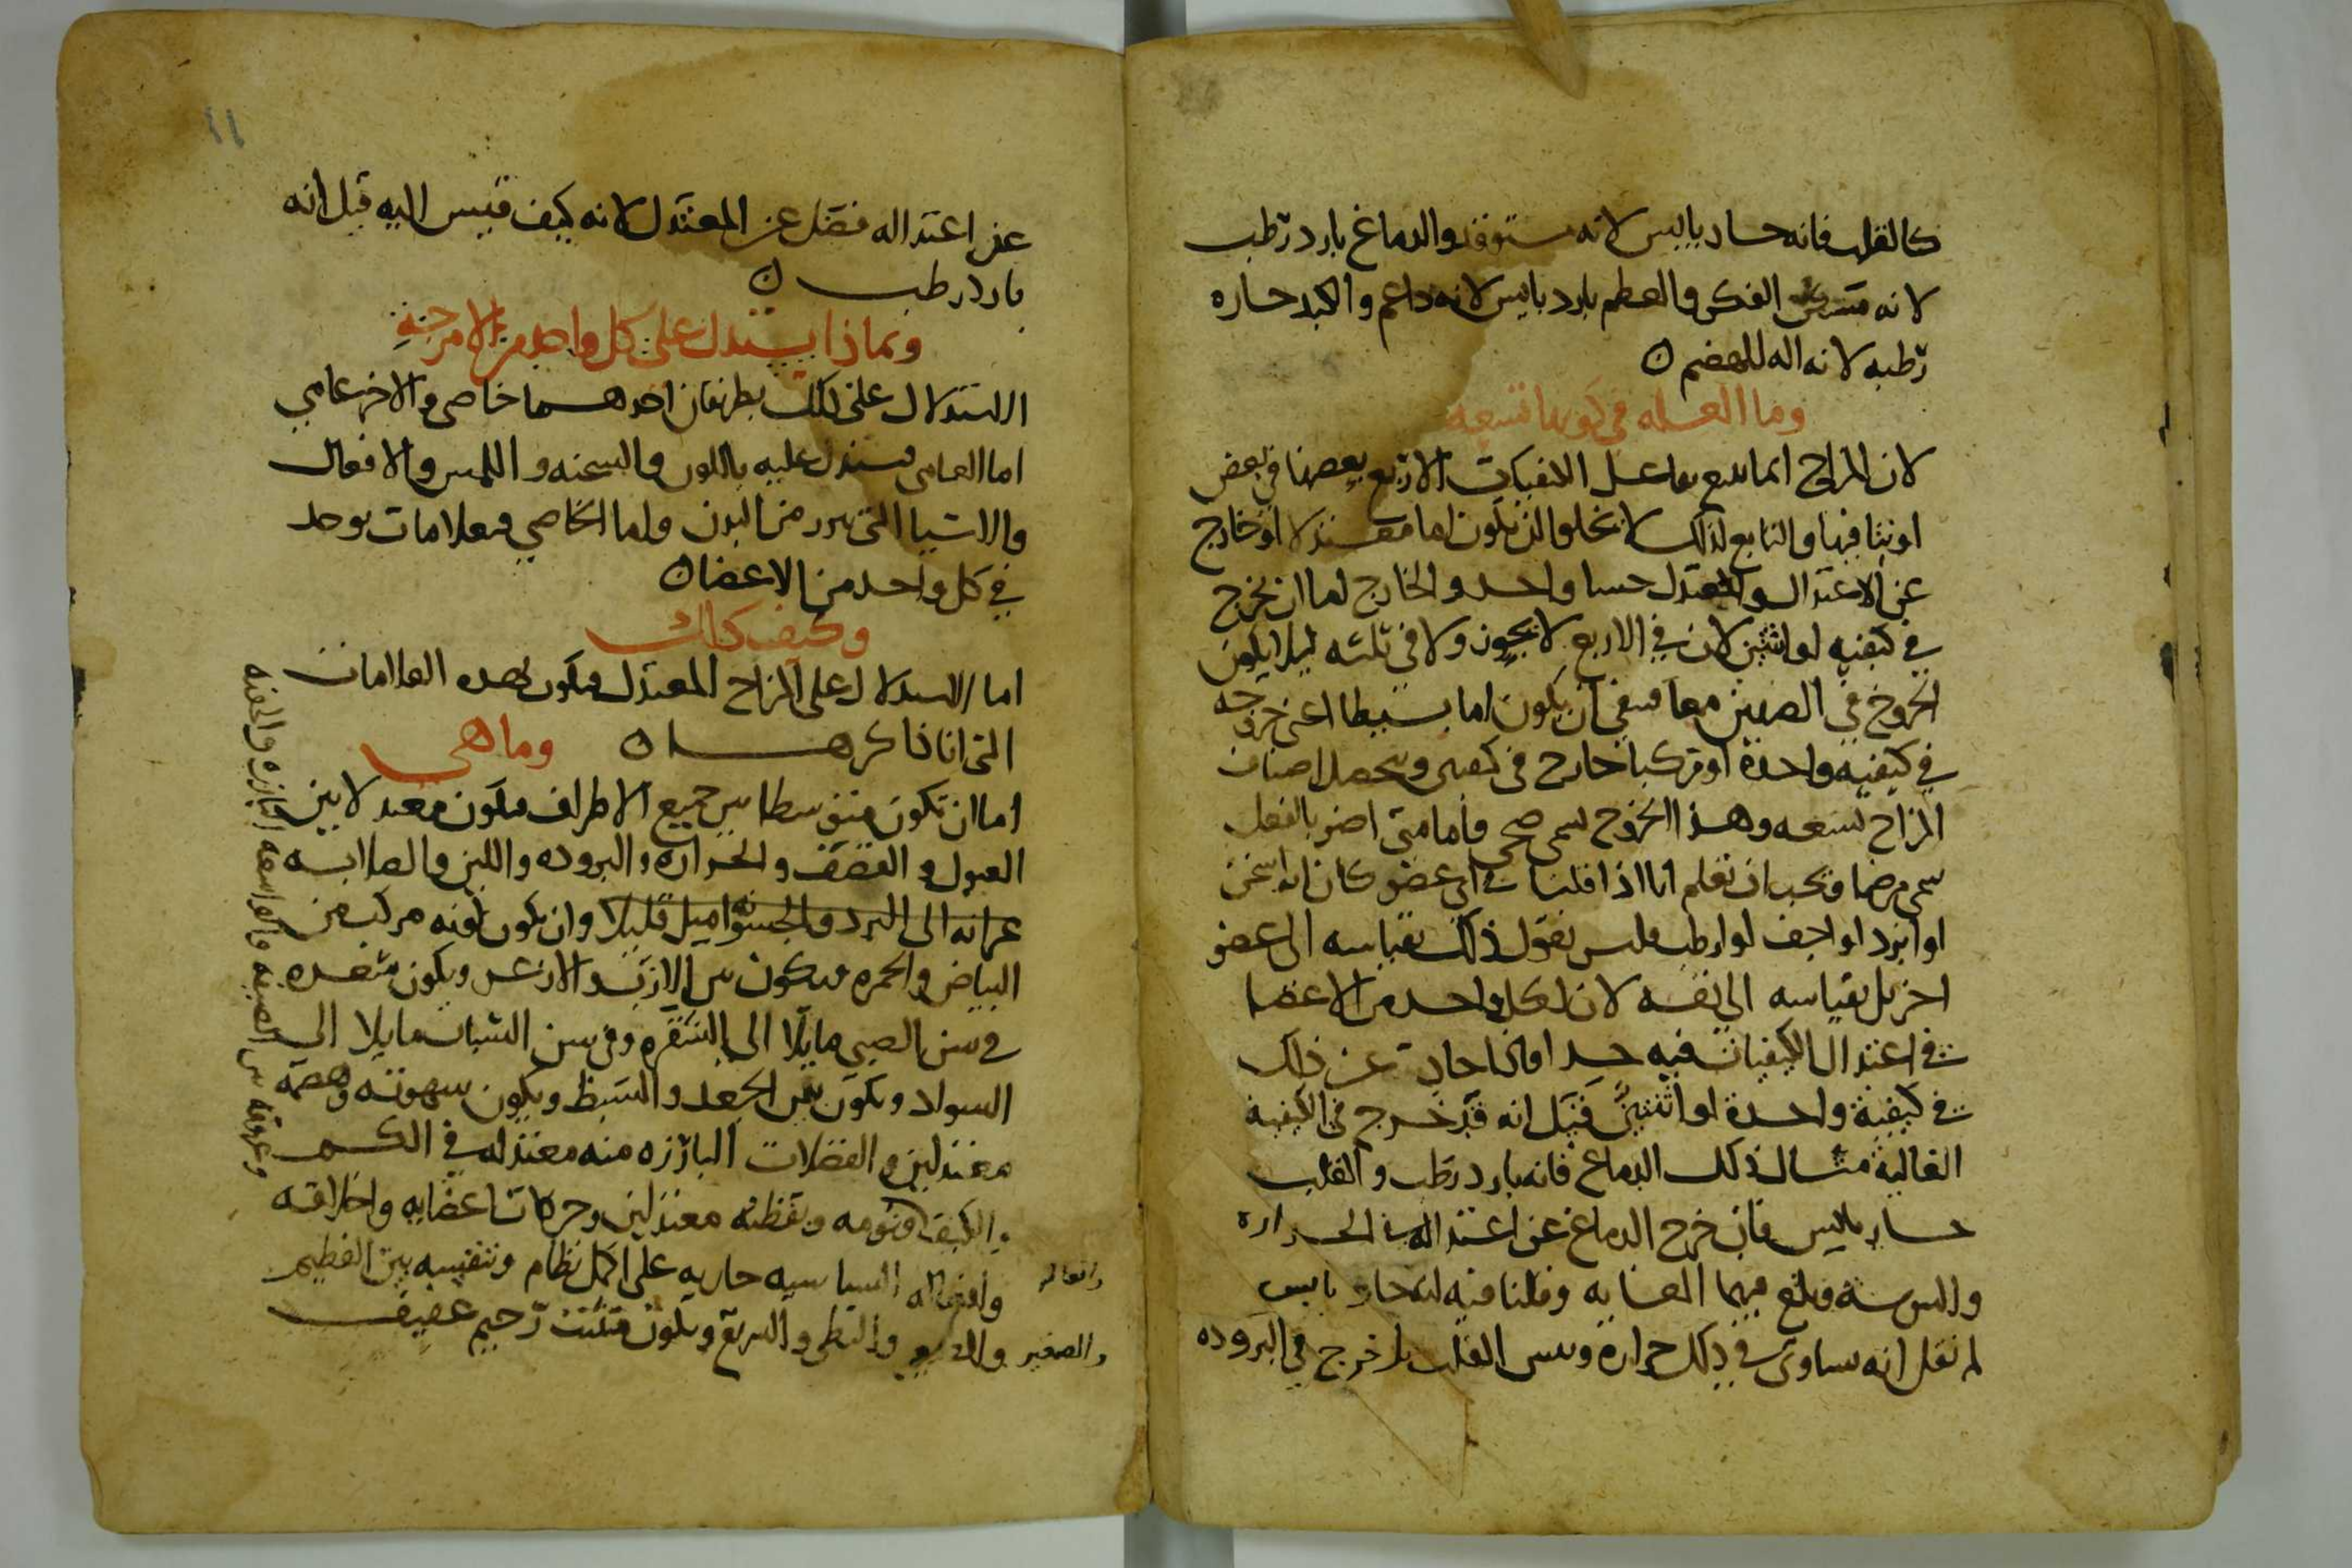 كالقلب فانه حار يابس لانه مستوقد والدماغ بارد رطب
لانه مسكن الفكر والعظم بارد يابس لانه داعم والكبد حاره
رطبه لانه اله للهضم ه
وما العله في كونها تسعه
لان المزاج انما يتبع تفاعل الكيفيات الاربع بعضها في بعض
او بثافيها والتابع لذلك لا يخلوا ان يكون اما معتدلا او خارج
عن الاعتدال والمعتدل حسا واحد والخارج اما ان يخرج
في كيفيه او اثنتين لان في الاربع لا يجوز ولا في ثلثه ليلا يكون
الخروج في الضدين معا فبقي ان يكون اما بسيطا اعني خروجه
في كيفيه واحدة او مركبا خارج في كيفيتين ويتحصل اصناف
المزاج تسعه وهذا الخروج يسمى صحي فاما متى اضر بالفعل
سمي مرضا ويجب ان تعلم انا اذا قلنا في اي عضو كان انه اسخن
او ابرد او اجف او ارطب فليس نقول ذلك بقياسه الى عضو
اخر بل بقياسه الى نفسه لان لكل واحد من الاعضا
في اعتدال الكيفيات فيه حدا فاذا حاد عن ذلك
في كيفية واحدة او اثنتين قيل انه قد خرج في الكيفية
الغالبة مثال ذلك الدماغ فانه بارد رطب والقلب
حار يابس فان خرج الدماغ عن اعتداله في الحرارة
واليبوسة وبلغ فيهما الغايه وقلنا فيه انه حار يابس
لم نقل انه يساوى في ذلك حرارة ويبس القلب بل خرج في البروده
عن اعتداله فضل عن المعتدل لانه كيف قيس اليه قيل انه
بارد رطب ه
وبماذا يستدل على كل واحد من الامزجه
الاستدلال على ذلك بطريقان احدهما خاصي والاخر عامي
اما العامي فيستدل عليه باللون والسحنه واللمس والافعال
والاشيا التي تبرز من البدن واما الخاصي فعلامات توجد
في كل واحد من الاعضا ه
وكيف ذلك
اما الاستدلال على المزاج المعتدل فيكون بهذه العلامات
التي انا ذاكرها ه وما هي
اما ان تكون متوسطا بين جميع الاطراف فيكون معتدلا بين
العبول والقضف والحراره والبروده واللين والصلابه
غير انه الى البرد والجسو اميل قليلا وان يكون لونه مركب من
البياض والحمره فيكون بين الازب والازعر ويكون شعره
في سن الصبي مايلا الى الشقره وفي سن الشباب مايلا الى
السواد ويكون بين الجعد والسبط ويكون شهوته وهضمه
معتدلين والفضلات البارزه منه معتدله في الكم
والكيف ونومه ويقظته معتدلين وحركات اعضايه واخلاقه
وافعاله السياسيه جاريه على اكمل نظام وتنفسه بين العظيم
والصغير والبطي والسريع ويكون متثبت رحيم عفيف
وعروقه بين الضيقه والواسعه البارزه والخفيه